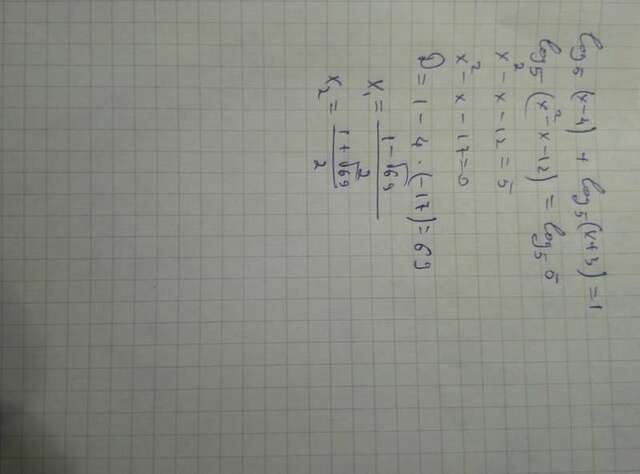 log₅(x-4) + log₅(x+3) = 1
log₅(x²-x-12) = log₅5
x²-x-12=5
x²-x-17=0
D=1-4·(-17)=69
x₁ = (1-√69)/2
x₂ = (1+√69)/2